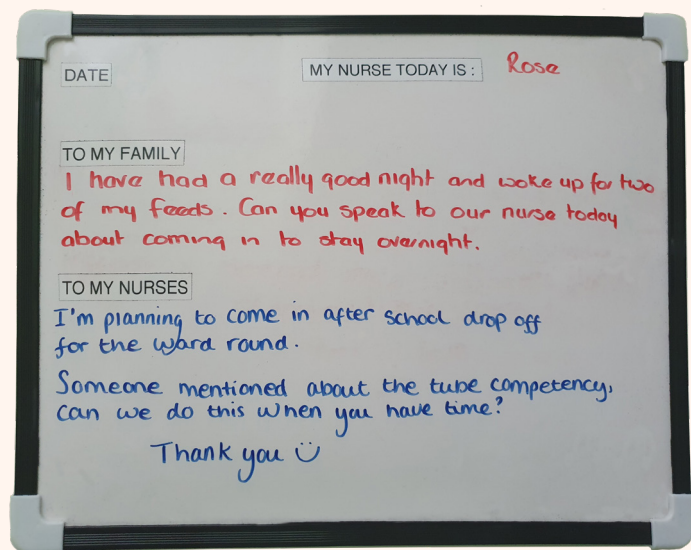 DATE
MY NURSE TODAY IS : Rose
TO MY FAMILY
I have had a really good night and woke up for two
of my feeds. Can you speak to our nurse today
about coming in to stay overnight.
TO MY NURSES
I'm planning to come in after school drop off
for the ward round.
Someone mentioned about the tube competency,
can we do this when you have time?
Thank you